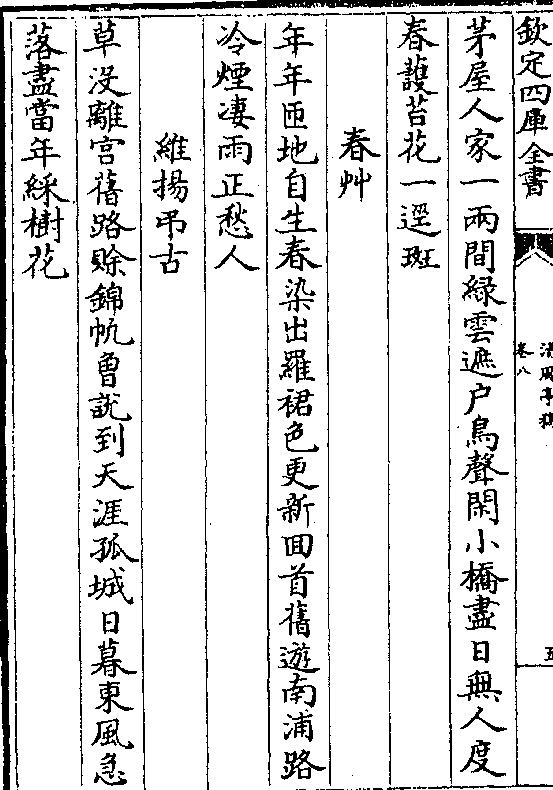 欽定四庫全書
清風亭稿
卷八
五
茅屋人家一兩間緑雲遮户鳥聲閑小橋盡日無人度
春護苔花一逕斑
春艸
年年匝地自生春染出羅裙色更新囬首舊遊南浦路
冷煙凄雨正愁人
維揚弔古
草没離宮舊路賒錦帆曾說到天涯孤城日暮東風急
落盡當年綵樹花